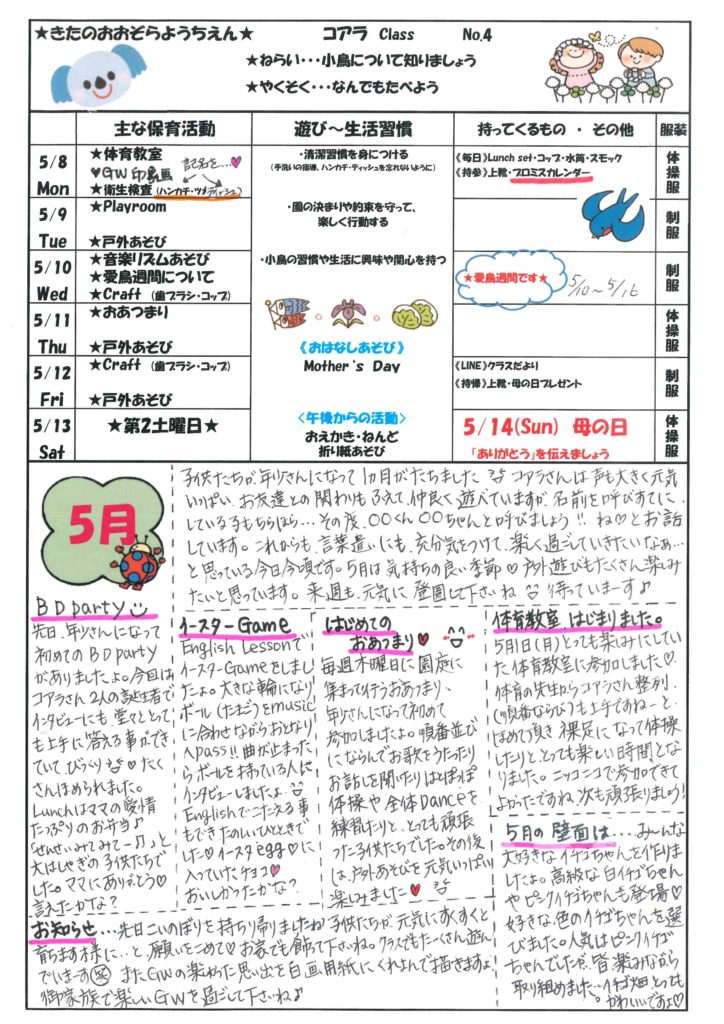 ★きたのおおぞらようちえん★ コアラ Class No.4
★ねらい・・・小鳥について知りましょう
★やくそく・・・なんでもたべよう
主な保育活動 遊び～生活習慣 持ってくるもの ・ その他 服装
5/8 Mon
★体育教室
♥GW印象画 記名を…♥
★衛生検査 (ハンカチ・ツメ・ティッシュ)
・清潔習慣を身につける
(手洗いの指導、ハンカチ・ティッシュを忘れないように)
《毎日》Lunch set・コップ・水筒・スモック
《持参》上靴・プロミスカレンダー
体操服
5/9 Tue
★Playroom
★戸外あそび
・園の決まりや約束を守って、
楽しく行動する
制服
5/10 Wed
★音楽リズムあそび
★愛鳥週間について
★Craft (歯ブラシ・コップ)
・小鳥の習慣や生活に興味や関心を持つ
★愛鳥週間です★ 5/10～5/16
制服
5/11 Thu
★おあつまり
★戸外あそび
《おはなしあそび》
Mother's Day
体操服
5/12 Fri
★Craft (歯ブラシ・コップ)
★戸外あそび
《LINE》クラスだより
《持帰》上靴・母の日プレゼント
制服
5/13 Sat
★第2土曜日★
<午後からの活動>
おえかき・ねんど
折り紙あそび
5/14(Sun) 母の日
「ありがとう」を伝えましょう
体操服
5月
子供たちが年少さんになって1カ月がたちました コアラさんは声も大きく元気
いっぱい、お友達との関わりもふえて、仲良く遊べていますが、名前を呼びすてに、
している子もちらほら…その度、〇〇くん〇〇ちゃんと呼びましょう!! ね♡とお話
しています。これからも、言葉遣いにも、充分気をつけて、楽しく過ごしていきたいなあ…
と思っている今日今頃です。5月は気持ちの良い季節♡戸外遊びもたくさん楽しみ
たいと思っています。来週も、元気に登園して下さいね 待っていまーす♪
BD party
先日、年少さんになって
初めてのBD party
がありましたよ。今回は
コアラさん2人の誕生者で
インタビューにも、堂々ととって
も上手に答える事ができ
ていて、びっくり♡たく
さんほめられました。
Lunchはママの愛情
たっぷりのお弁当♪
「せんせいみてみてー♫」と
大はしゃぎの子供たちで
した。ママにありがとう♡
言えたかな?
イースターGame
English Lessonで
イースターGameをしまし
たよ。大きな輪になり
ボール(たまご)をmusic
に合わせながらおとなり
へpass!!曲が止まった
らボールを持っている人に
インタビューしましたよ。
Englishでこたえる事
もできたのしいひとときで
した♡イースターegg♡に
入っていたチョコ♡
おいしかったかな?
はじめての
おあつまり♥
毎週木曜日に園庭に
集まって行うおあつまり、
年少さんになって初めて
参加しましたよ。順番並び
にならんでお歌をうたったり
お話しを聞いたりはとぽっぽ
体操や全体Danceを
練習したりと、とっても頑張
った子供たちでした。その後
は、戸外あそびを元気いっぱい
楽しみました♥
体育教室 はじまりました。
5月1日(月)とっても楽しみにしてい
た体育教室に参加しました♡
体育の先生からコアラさん整列
(順番ならび)も上手ですねーと、
ほめて頂き裸足になって体操
したりと、とっても楽しい時間とな
りました。ニッコニコで参加できて
よかったですね、次も頑張りましょう!
5月の壁面は…みーんな
大好きなイチゴちゃんを作りま
したよ。高級な白イチゴちゃん
やピンクイチゴちゃんも登場♡
好きな色のイチゴちゃんを選
びました。人気はピンクイチゴ
ちゃんでしたが、皆楽しみながら
取り組めました…イチゴ畑とっても
かわいいですよ♡
お知らせ…先日こいのぼりを持ち帰りましたね! 子供たちが元気にすくすくと
育ちます様に…と、願いをこめて♡お家でも飾って下さいね。クラスでもたーくさん遊ん
でいます またGWの楽しかった思い出を白画用紙にくれよんで描きますよ、
御家族で楽しいGWを過ごして下さいね♪